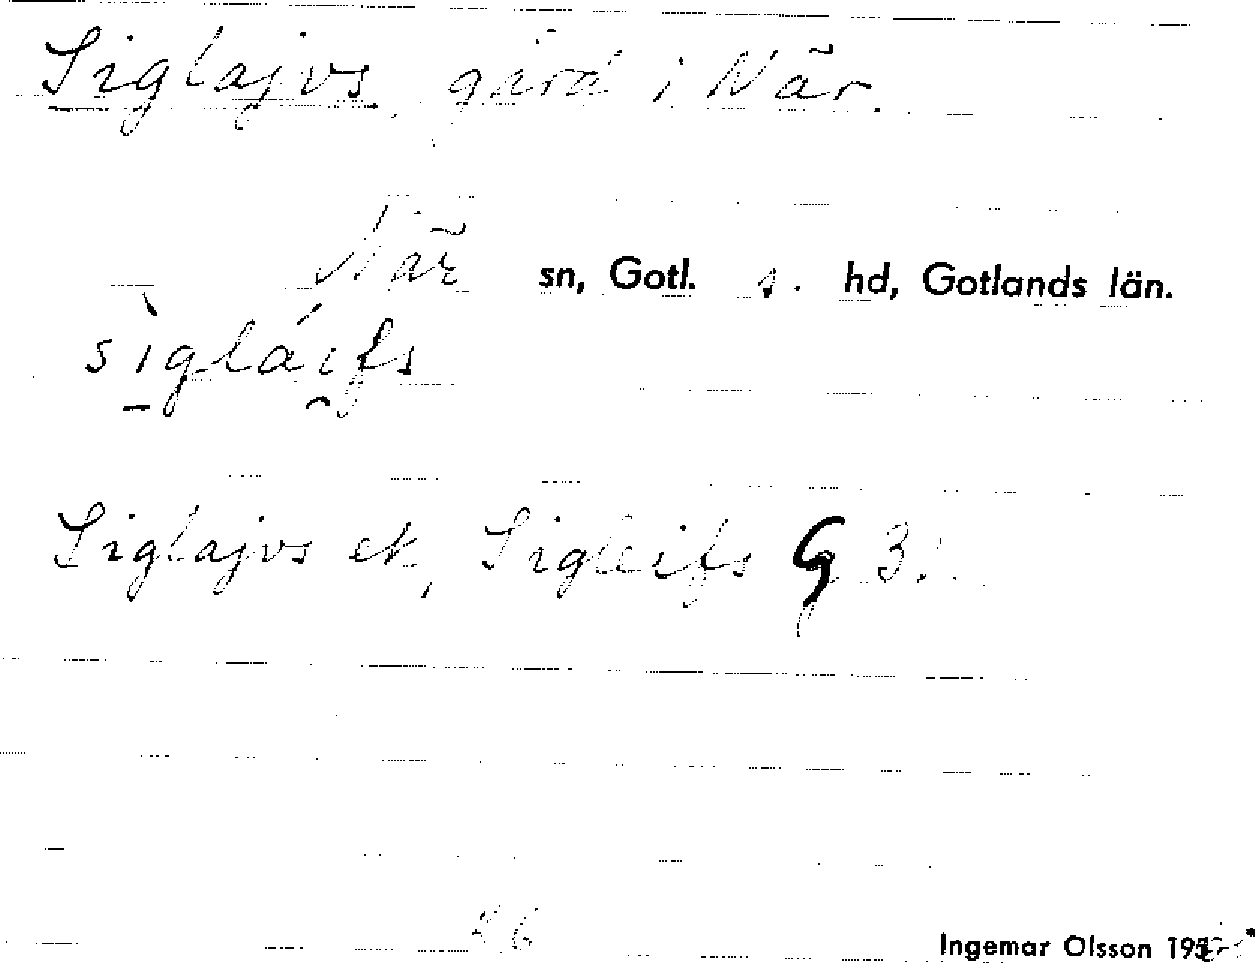 Siglajvs, gård i När.
När sn, Gotl. s. hd, Gotlands län.
sìgláifs
Siglajvs ek, Sigleifs G 3.
26
Ingemar Olsson